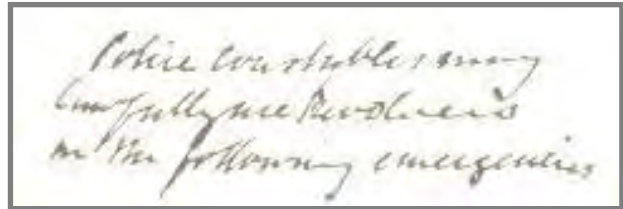 Police Constables may
lawfully use Revolvers
in the following emergencies